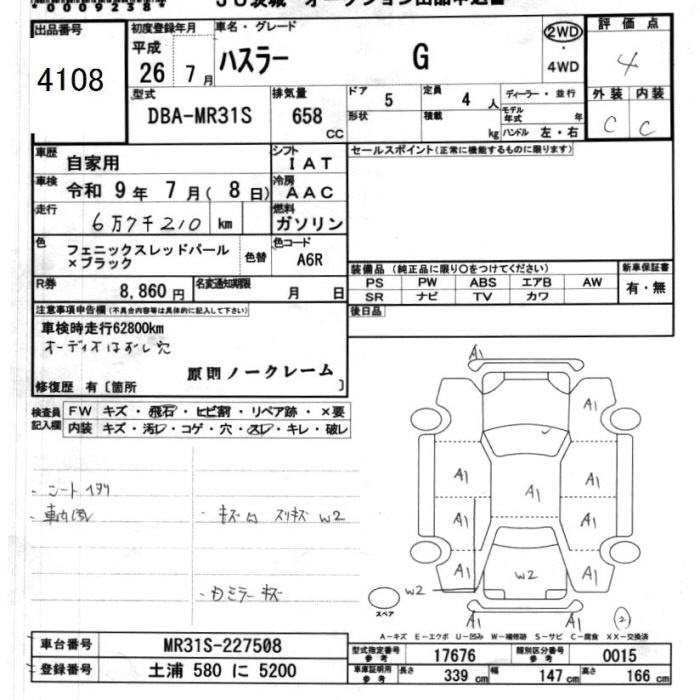 *0009238*
JU茨城 オークション出品申込書
出品番号
4108
初度登録年月
平成 26年 7月
車名・グレード
ハスラー G
2WD ・ 4WD
評価点
4
外装 内装
C C
型式
DBA-MR31S
排気量
658 CC
ドア 5
定員 4 人
ディーラー・並行
形状
積載 kg
モデル年式 年
ハンドル 左・右
車歴 自家用
シフト IAT
セールスポイント(正常に機能するものに限ります)
車検 令和 9年 7月( 8日)
冷房 AAC
走行 6万7千210 km
燃料 ガソリン
色 フェニックスレッドパール×ブラック
色替
色コード A6R
R券 8,860円
名変通知期限 月 日
装備品 (純正品に限り〇をつけてください)
新車保証書
PS PW ABS エアB AW
有・無
SR ナビ TV カワ
後日品
注意事項申告欄(不具合内容等は具体的に記入して下さい)
車検時走行62800km
オーディオはずし穴
原則ノークレーム
修復歴 有〔箇所 〕
検査員記入欄
FW キズ・飛石・ヒビ割・リペア跡・×要
内装 キズ・汚レ・コゲ・穴・スレ・キレ・破レ
・シート
・車内
・キズ凹 スリキズ W2
・ミラーキズ
A1
A1
A1
A1
A1
A1
A1
A1
A1
W2
A1
W2
スペア
A1
②
A-キズ E-エクボ U-凹み W-補修跡 S-サビ C-腐食 XX-交換済
車台番号 MR31S-227508
型式指定番号参考 17676
類別区分番号参考 0015
登録番号 土浦 580 に 5200
車庫証明用参考
長さ 339 cm
幅 147 cm
高さ 166 cm